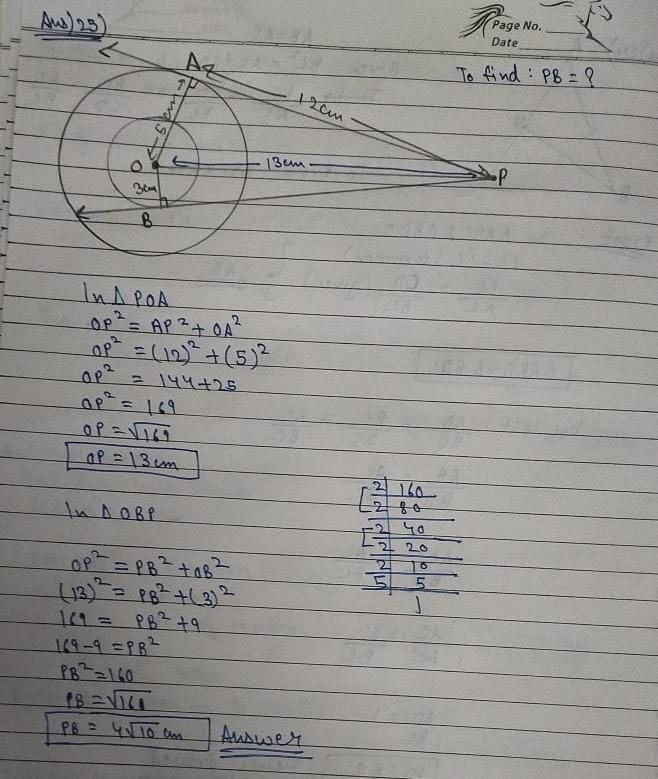 Ans) 25)
Page No.
Date
To find : PB = ?
A
12cm
5cm
O
13cm
P
3cm
B
In Δ POA
OP² = AP² + OA²
OP² = (12)² + (5)²
OP² = 144+25
OP² = 169
OP = √169
OP = 13 cm
In Δ OBP
OP² = PB² + OB²
(13)² = PB² + (3)²
169 = PB² + 9
169 - 9 = PB²
PB² = 160
PB = √160
PB = 4√10 cm Answer
2 160
2 80
2 40
2 20
2 10
5 5
1